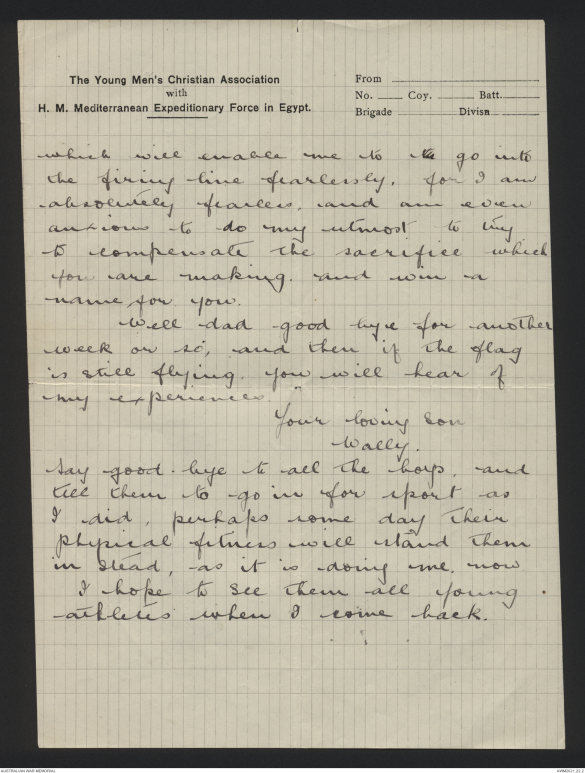 The Young Men's Christian Association
with
H. M. Mediterranean Expeditionary Force in Egypt.
From
No. Coy. Batt.
Brigade Divisn
which will enable me to go into
the firing line fearlessly, for I am
absolutely fearless, and am even
anxious to do my utmost to try
to compensate the sacrifice which
you are making, and win a
name for you.
Well dad good bye for another
week or so, and then if the flag
is still flying you will hear of
my experiences.
Your loving son
Wally.
Say good-bye to all the boys, and
tell them to go in for sport as
I did, perhaps some day their
physical fitness will stand them
in stead, as it is doing me, now
I hope to see them all young
athletes when I come back.
AUSTRALIAN WAR MEMORIAL